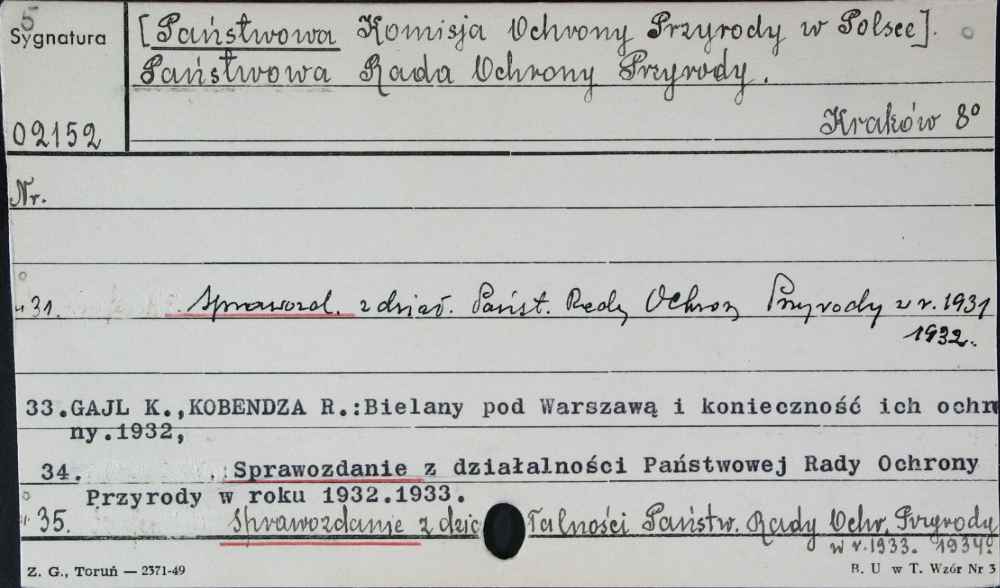 5
Sygnatura
[Państwowa Komisja Ochrony Przyrody w Polsce].
Państwowa Rada Ochrony Przyrody.
02152
Kraków 8°
Nr.
31. Sprawozd. z dział. Państ. Rady Ochrony Przyrody z r. 1931
1932.
33.GAJL K.,KOBENDZA R.:Bielany pod Warszawą i konieczność ich ochr
ny.1932,
34. Sprawozdanie z działalności Państwowej Rady Ochrony
Przyrody w roku 1932.1933.
35. Sprawozdanie z dzia łalności Państw. Rady Ochr. Przyrody
w r.1933. 1934.
Z. G., Toruń — 2371-49
B. U w T. Wzór Nr 3